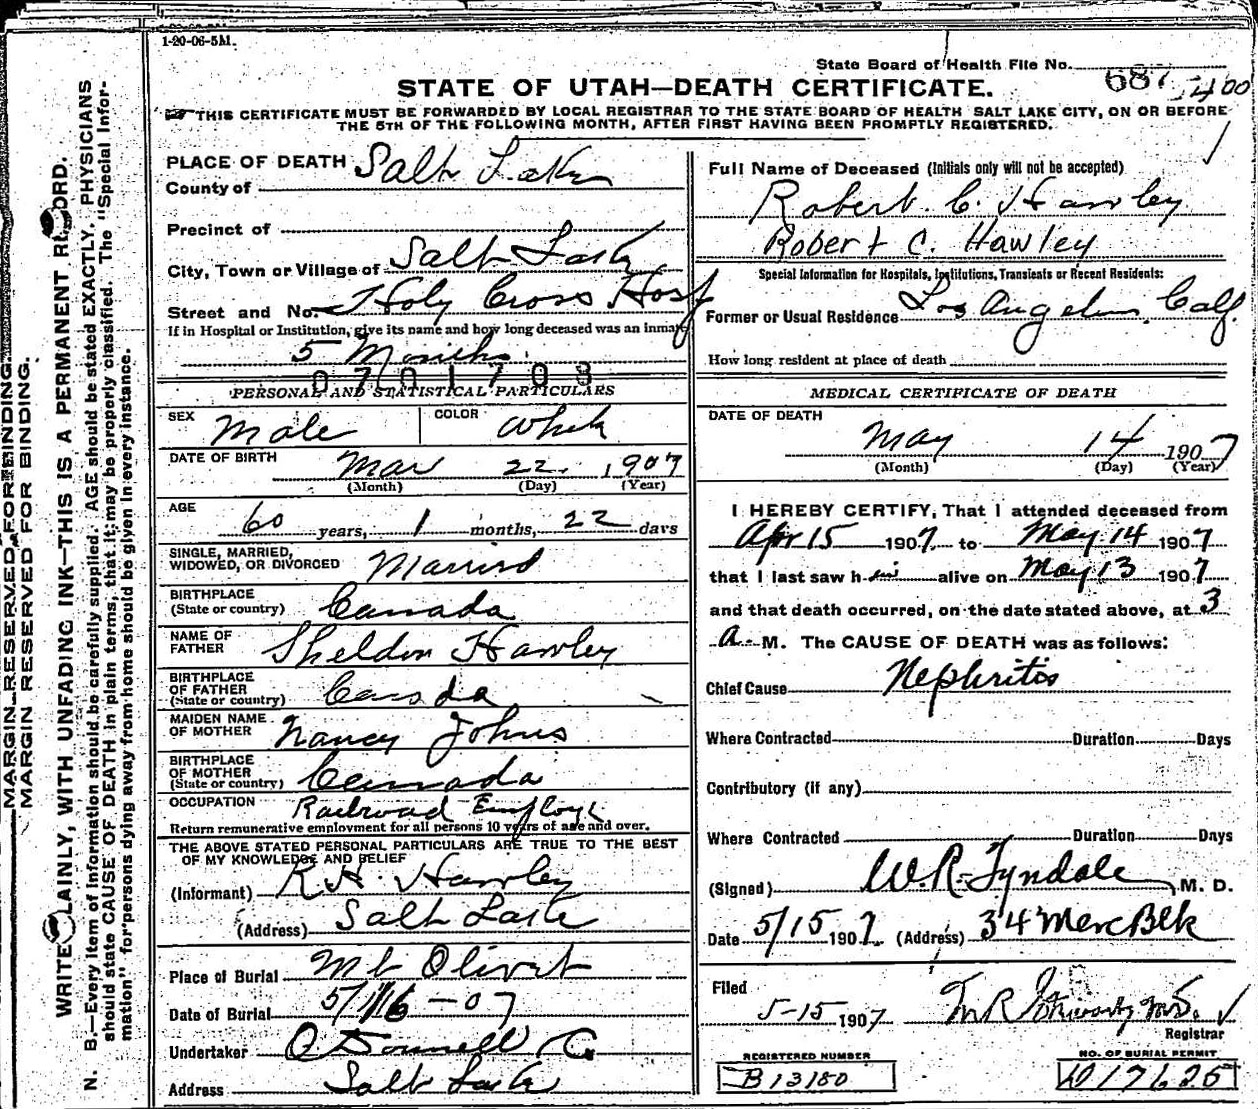 1-20-06-5M.
State Board of Health File No. 687-400
STATE OF UTAH—DEATH CERTIFICATE.
THIS CERTIFICATE MUST BE FORWARDED BY LOCAL REGISTRAR TO THE STATE BOARD OF HEALTH SALT LAKE CITY, ON OR BEFORE
THE 5TH OF THE FOLLOWING MONTH, AFTER FIRST HAVING BEEN PROMPTLY REGISTERED.
MARGIN RESERVED FOR BINDING.
MARGIN RESERVED FOR BINDING.
WRITE PLAINLY, WITH UNFADING INK—THIS IS A PERMANENT RECORD.
N. B.—Every item of information should be carefully supplied. AGE should be stated EXACTLY. PHYSICIANS
should state CAUSE OF DEATH in plain terms, that it may be properly classified. The "Special Infor-
mation" for persons dying away from home should be given in every instance.
PLACE OF DEATH
County of Salt Lake
Precinct of
City, Town or Village of Salt Lake
Street and No. Holy Cross Hosp
If in Hospital or Institution, give its name and how long deceased was an inmate
5 Months
0701708
PERSONAL AND STATISTICAL PARTICULARS
SEX Male COLOR White
DATE OF BIRTH Mar 22 1907
(Month) (Day) (Year)
AGE 60 years, 1 months, 22 days
SINGLE, MARRIED,
WIDOWED, OR DIVORCED Married
BIRTHPLACE
(State or country) Canada
NAME OF
FATHER Sheldon Hawley
BIRTHPLACE
OF FATHER
(State or country) Canada
MAIDEN NAME
OF MOTHER Nancy Johns
BIRTHPLACE
OF MOTHER
(State or country) Canada
OCCUPATION Railroad Employe
Return remunerative employment for all persons 10 years of age and over.
THE ABOVE STATED PERSONAL PARTICULARS ARE TRUE TO THE BEST
OF MY KNOWLEDGE AND BELIEF
(Informant) R H. Hawley
(Address) Salt Lake
Place of Burial Mt Olivet
Date of Burial 5/16-07
Undertaker O Donnell Co
Address Salt Lake
Full Name of Deceased (Initials only will not be accepted)
Robert C. Hawley
Robert C. Hawley
Special Information for Hospitals, Institutions, Transients or Recent Residents:
Former or Usual Residence Los Angeles, Calf.
How long resident at place of death
MEDICAL CERTIFICATE OF DEATH
DATE OF DEATH
May 14 1907
(Month) (Day) (Year)
I HEREBY CERTIFY, That I attended deceased from
Apr 15 1907 to May 14 1907
that I last saw him alive on May 13 1907
and that death occurred, on the date stated above, at 3
a. M. The CAUSE OF DEATH was as follows:
Chief Cause Nephritis
Where Contracted Duration Days
Contributory (if any)
Where Contracted Duration Days
(Signed) W.R. Tyndale, M. D.
Date 5/15 1907 (Address) 34 Merc Blk
Filed
5-15 1907
Registrar
REGISTERED NUMBER
B 13180
NO. OF BURIAL PERMIT
D17625